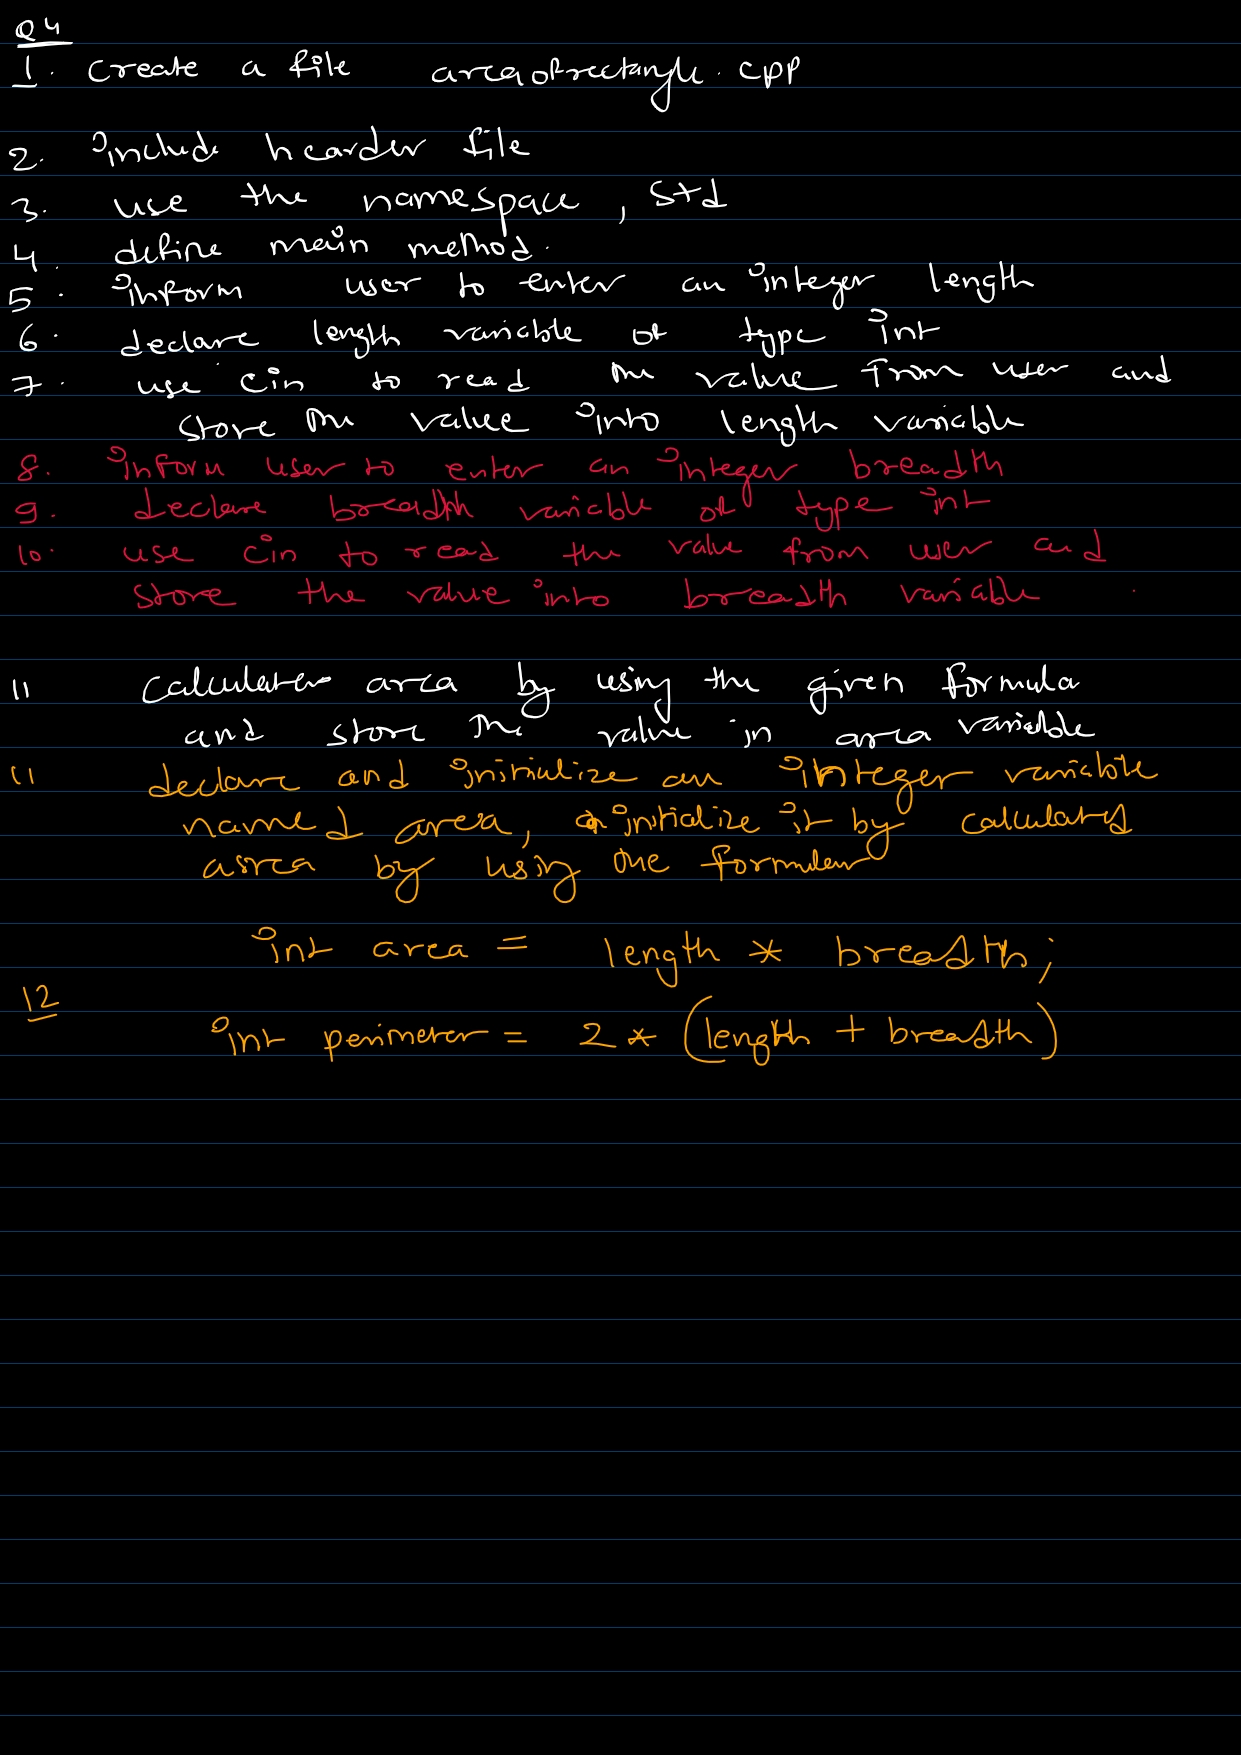 Q4
1. create a file areaofrectangle.cpp
2. include hearder file
3. use the namespace, std
4. define main method.
5. inform user to enter an integer length
6. declare length variable of type int
7. use cin to read the value from user and
store the value into length variable
8. inform user to enter an integer breadth
9. declare breadth variable of type int
10. use cin to read the value from user and
store the value into breadth variable
11 calculate area by using the given formula
and store the value in area variable
11 declare and initialize an integer variable
named area, initialize it by calculated
area by using the
int area = length * breadth;
12
int perimeter = 2 * (length + breadth)